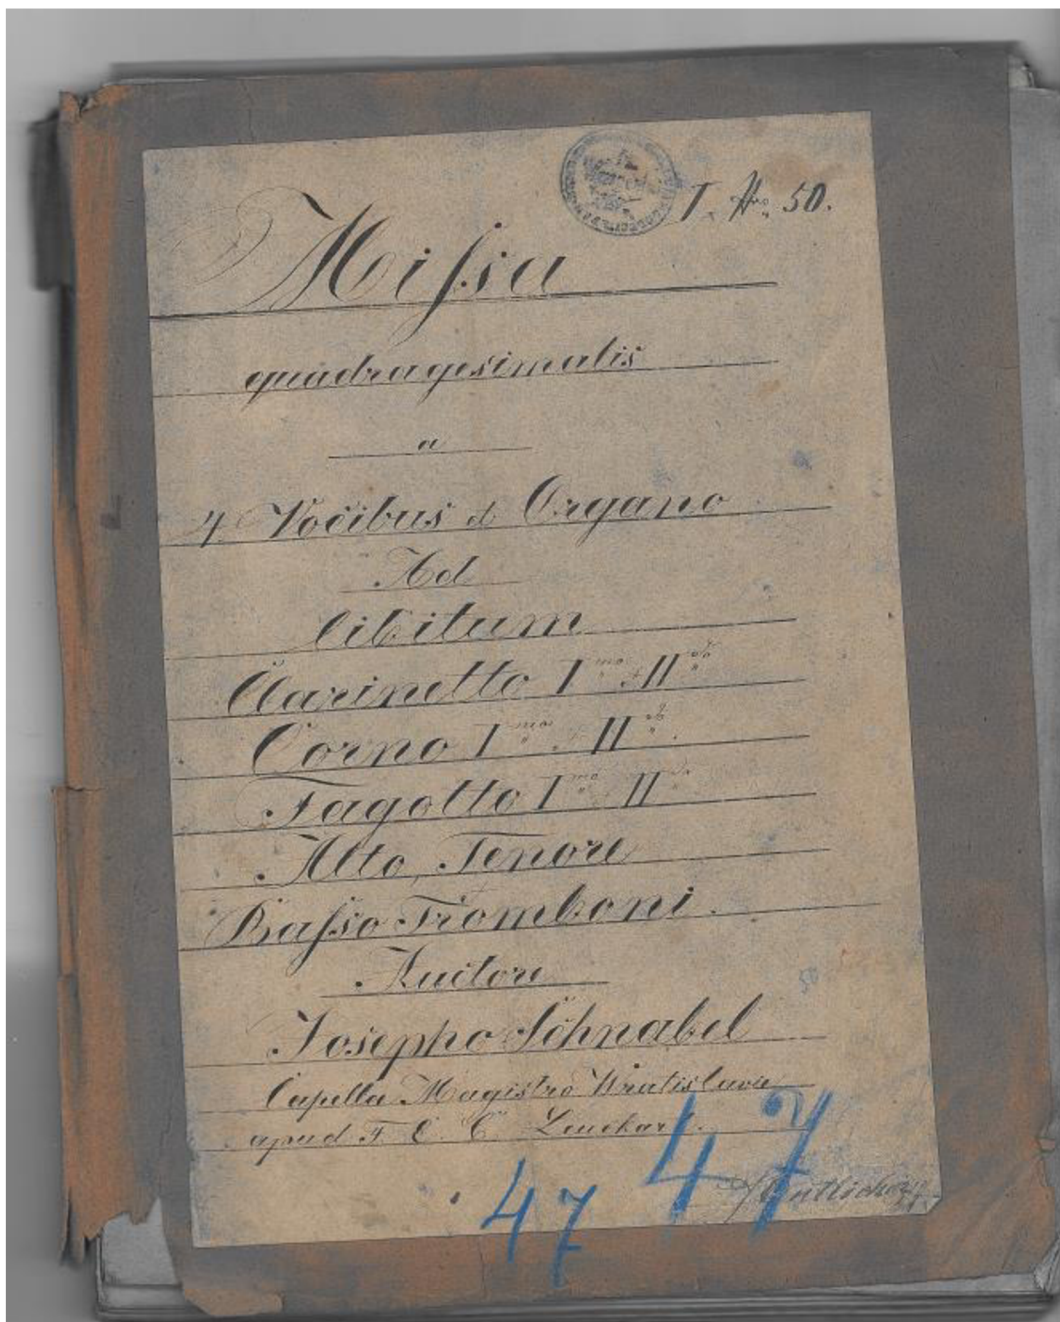 I. Nro. 50.
Missa
quadragesimalis
a
4 Vocibus et Organo
Ad
libitum
Clarinetto I mo + II do
Corno I mo + II do.
Fagotto I mo + II do
Alto, Tenore
Basso Tromboni.
Auctore
Josepho Schnabel
Capella Magistro Wratislavie
apud F. E. C. Leuckart.
50
47
47